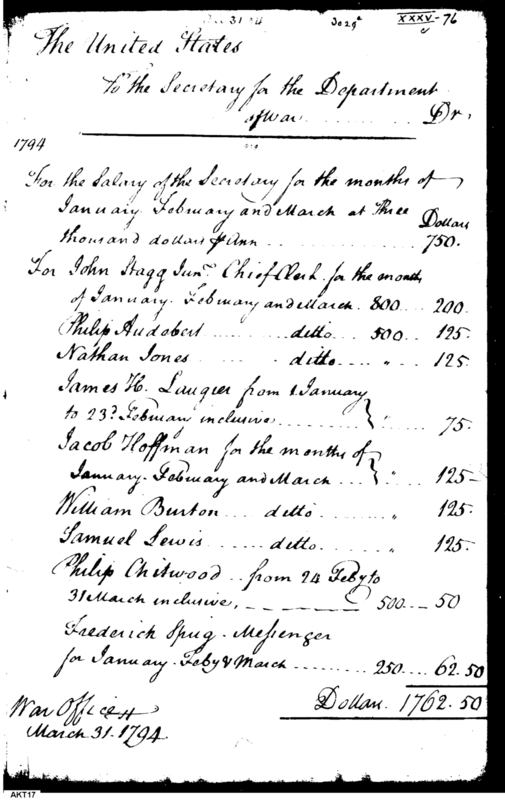 3029
XXXV-76
The United States
To the Secretary for the Department
of War .......... Dr.
1794
For the Salary of the Secretary for the months of
January February and March at three Dollars
thousand dollars ⅌ Ann ............ 750.
For John Stagg Junr. Chief Clerk for the months
of January. February and March. 800 .... 200.
Philip Audebert ........ ditto .... 500 .. 125.
Nathan Jones ...... ditto .... " .. 125.
James H. Laugier from 1 January
to 23d. February inclusive .......... } " .... 75.
Jacob Hoffman for the months of
January. February and March ... } " .... 125-
William Burton .... ditto ........ " 125.
Samuel Lewis ...... ditto ...... " 125.
Philip Chitwood .. from 24 Feby to
31 March inclusive, ________ 500 .... 50
Frederick Sprig. Messenger
for January. Feby & March ........ 250 .... 62.50
Dollars. 1762.50
War Office
March 31. 1794.
AKT17